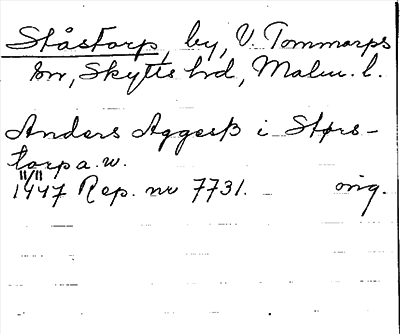 Ståstorp, by, V. Tommarps
sn, Skytts hd, Malm. l.
Anders Aggesß i Størs-
torp a.w.
11/11
1447 Rep. nr 7731. orig.